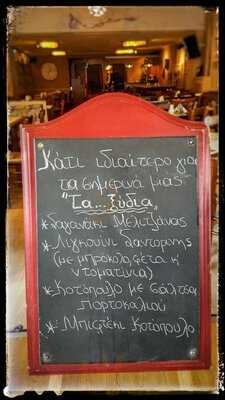 Κάτι ιδιαίτερο για
τα σημερινά μας
"Τα...ξύδια"
* Λαχανάκι Μελιτζάνας
* Λιγκουίνι Σαντορίνης
(με μπρόκολο, φέτα κ'
ντοματίνια)
* Κοτόπουλο με σάλτσα
Πορτοκαλιού
* Μπιφτέκι Κοτόπουλο